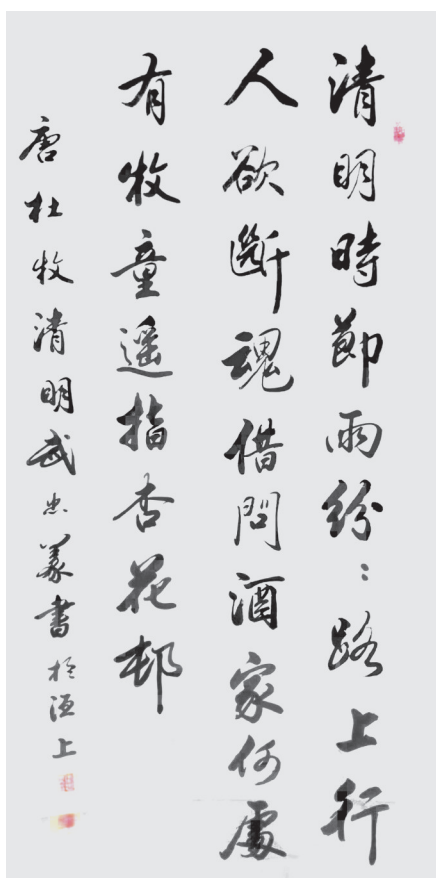 清明時節雨紛:路上行
人欲斷魂借問酒家何處
有牧童遥指杏花邨
唐杜牧清明武忠義書於洹上